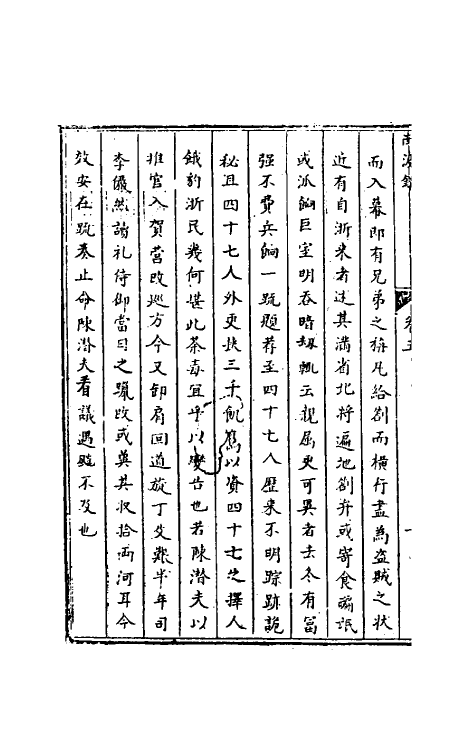 南渡錄
卷五
而入幕即有兄弟之稱凡給劄而橫行盡為盜賊之狀
近有自浙來者述其滿省北將遍地劄弁或寄食編氓
或派餉巨室明吞暗刼輒云親屬更可異者去冬有冨
强不費兵餉一疏題荐至四十七人歷來不明踪跡詭
秘且四十七人外更挾三千飢鷹以資四十七之擇人
餓豹浙民幾何堪此荼毒宜乎以變告也若陳潛夫以
推官入賀營改巡方今又卸肩回道旋丁艾艱半年司
李儼然諸礼侍御當日之躐改或䔬其収拾両河耳今
效安在疏奏止命陳潛夫看議遇赦不及也